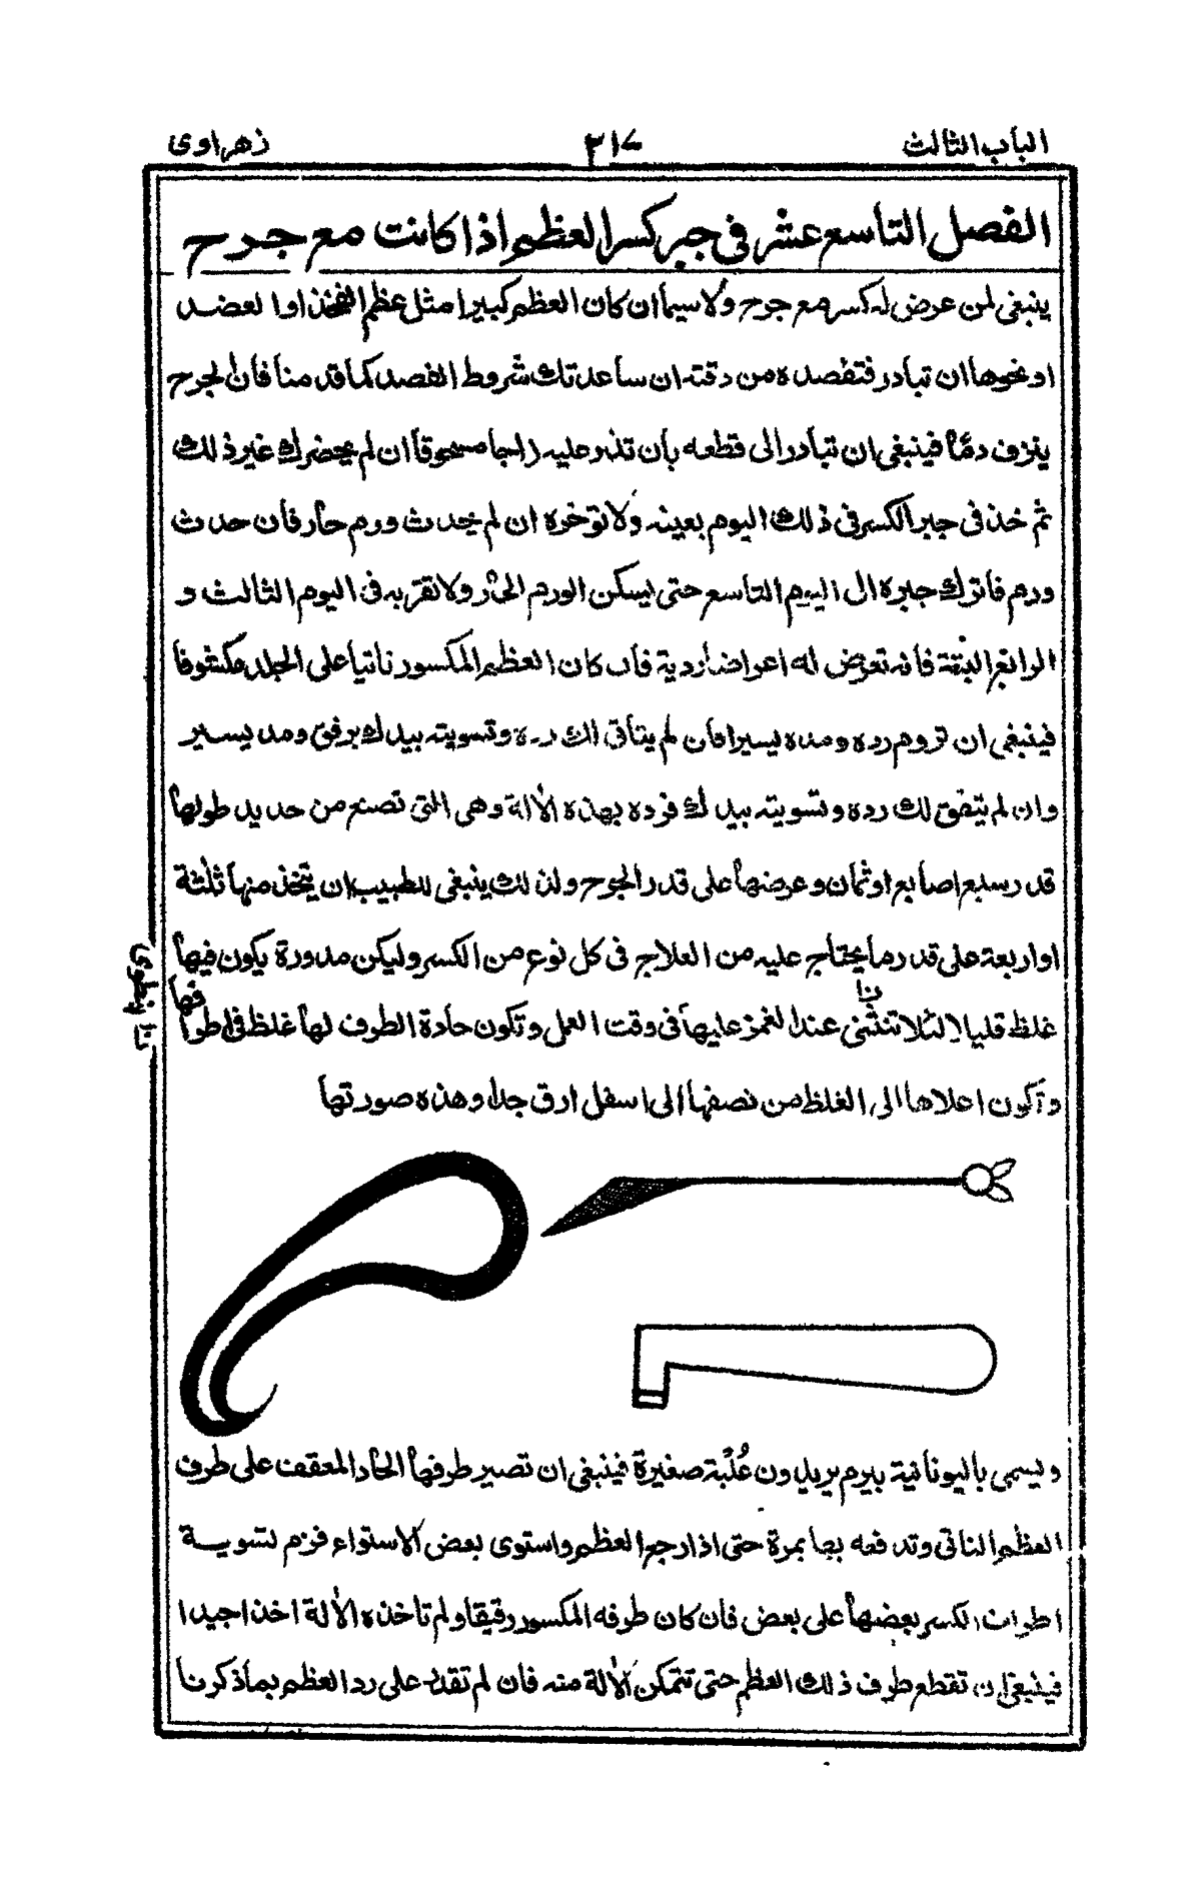 الباب الثالث ٣١٧ زهراوى
الفصل التاسع عشر فى جبر كسر العظم اذا كانت مع جرح
ينبغى لمن عرض له كسر مع جرح ولا سيما ان كان العظم كبيرا مثل عظم الفخذ او العضد
او نحوها ان تبادر فتفصده من دقته ان ساعدتك شروط الفصد كما قد منا فان الجرح
ينزف دمًا فينبغى ان تبادر الى قطعه بأن تذر عليه زاجا مسحوقا ان لم يحضرك غير ذلك
ثم خذ فى جبر الكسر فى ذلك اليوم بعينه ولا توخره ان لم يحدث ورم حار فان حدث
ورم فاترك جبره ال اليوم التاسع حتى يسكن الورم الحار ولا تقربه فى اليوم الثالث و
الرابع البتة فانه تعرض له اعراضا ردية فان كان العظم المكسور ناتيا على الجلد مكشوفا
فينبغى ان تروم رده ومده يسيرا فان لم يتأتى لك رده وتسويته بيدك برفق ومد يسير
وان لم يتفق لك رده وتسويته بيدك فرده بهذه الألة وهى التى تصنع من حديد طولها
قدر سبع اصابع او ثمان وعرضها على قدر الجرح ولذلك ينبغى للطبيب ان يتخذ منها ثلثة
او اربعة على قدر ما يحتاج عليه من العلاج فى كل نوع من الكسر وليكن مدورة يكون فيها
غلظ قليلا لئلا تنثنى عند الغمز عليها فى وقت العمل وتكون حادة الطرف لها غلظ فى اطرافها
وتكون اعلاها الى الغلظ من نصفها الى اسفل ارق جدا وهذه صورتها
ويسمى باليونانية بيرم يريدون عُلْبة صغيرة فينبغى ان تصير طرفها الحاد المعقف على طرف
العظم الناتى وتدفعه بها بمرة حتى اذا رجع العظم واستوى بعض الاستواء فرم تسوية
اطراف الكسر بعضها على بعض فان كان طرفه المكسور رقيقا ولم تأخذه الألة اخذا جيدا
فينبغى ان تقطع طرف ذلك العظم حتى تتمكن الألة منه فان لم تقدر على رد العظم بما ذكرنا